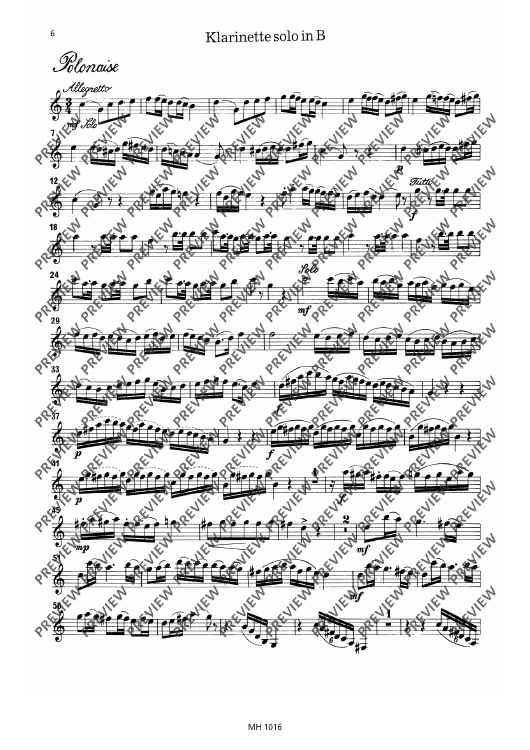 6
Klarinette solo in B
Polonaise
Allegretto
mf Solo
7
p
12
Tutti
f
18
24
Solo
mf
29
33
f
37
p
f
41
p
f
45
mp
2
mf
51
mf
56
6
6
MH 1016
PREVIEW PREVIEW PREVIEW PREVIEW PREVIEW PREVIEW PREVIEW PREVIEW